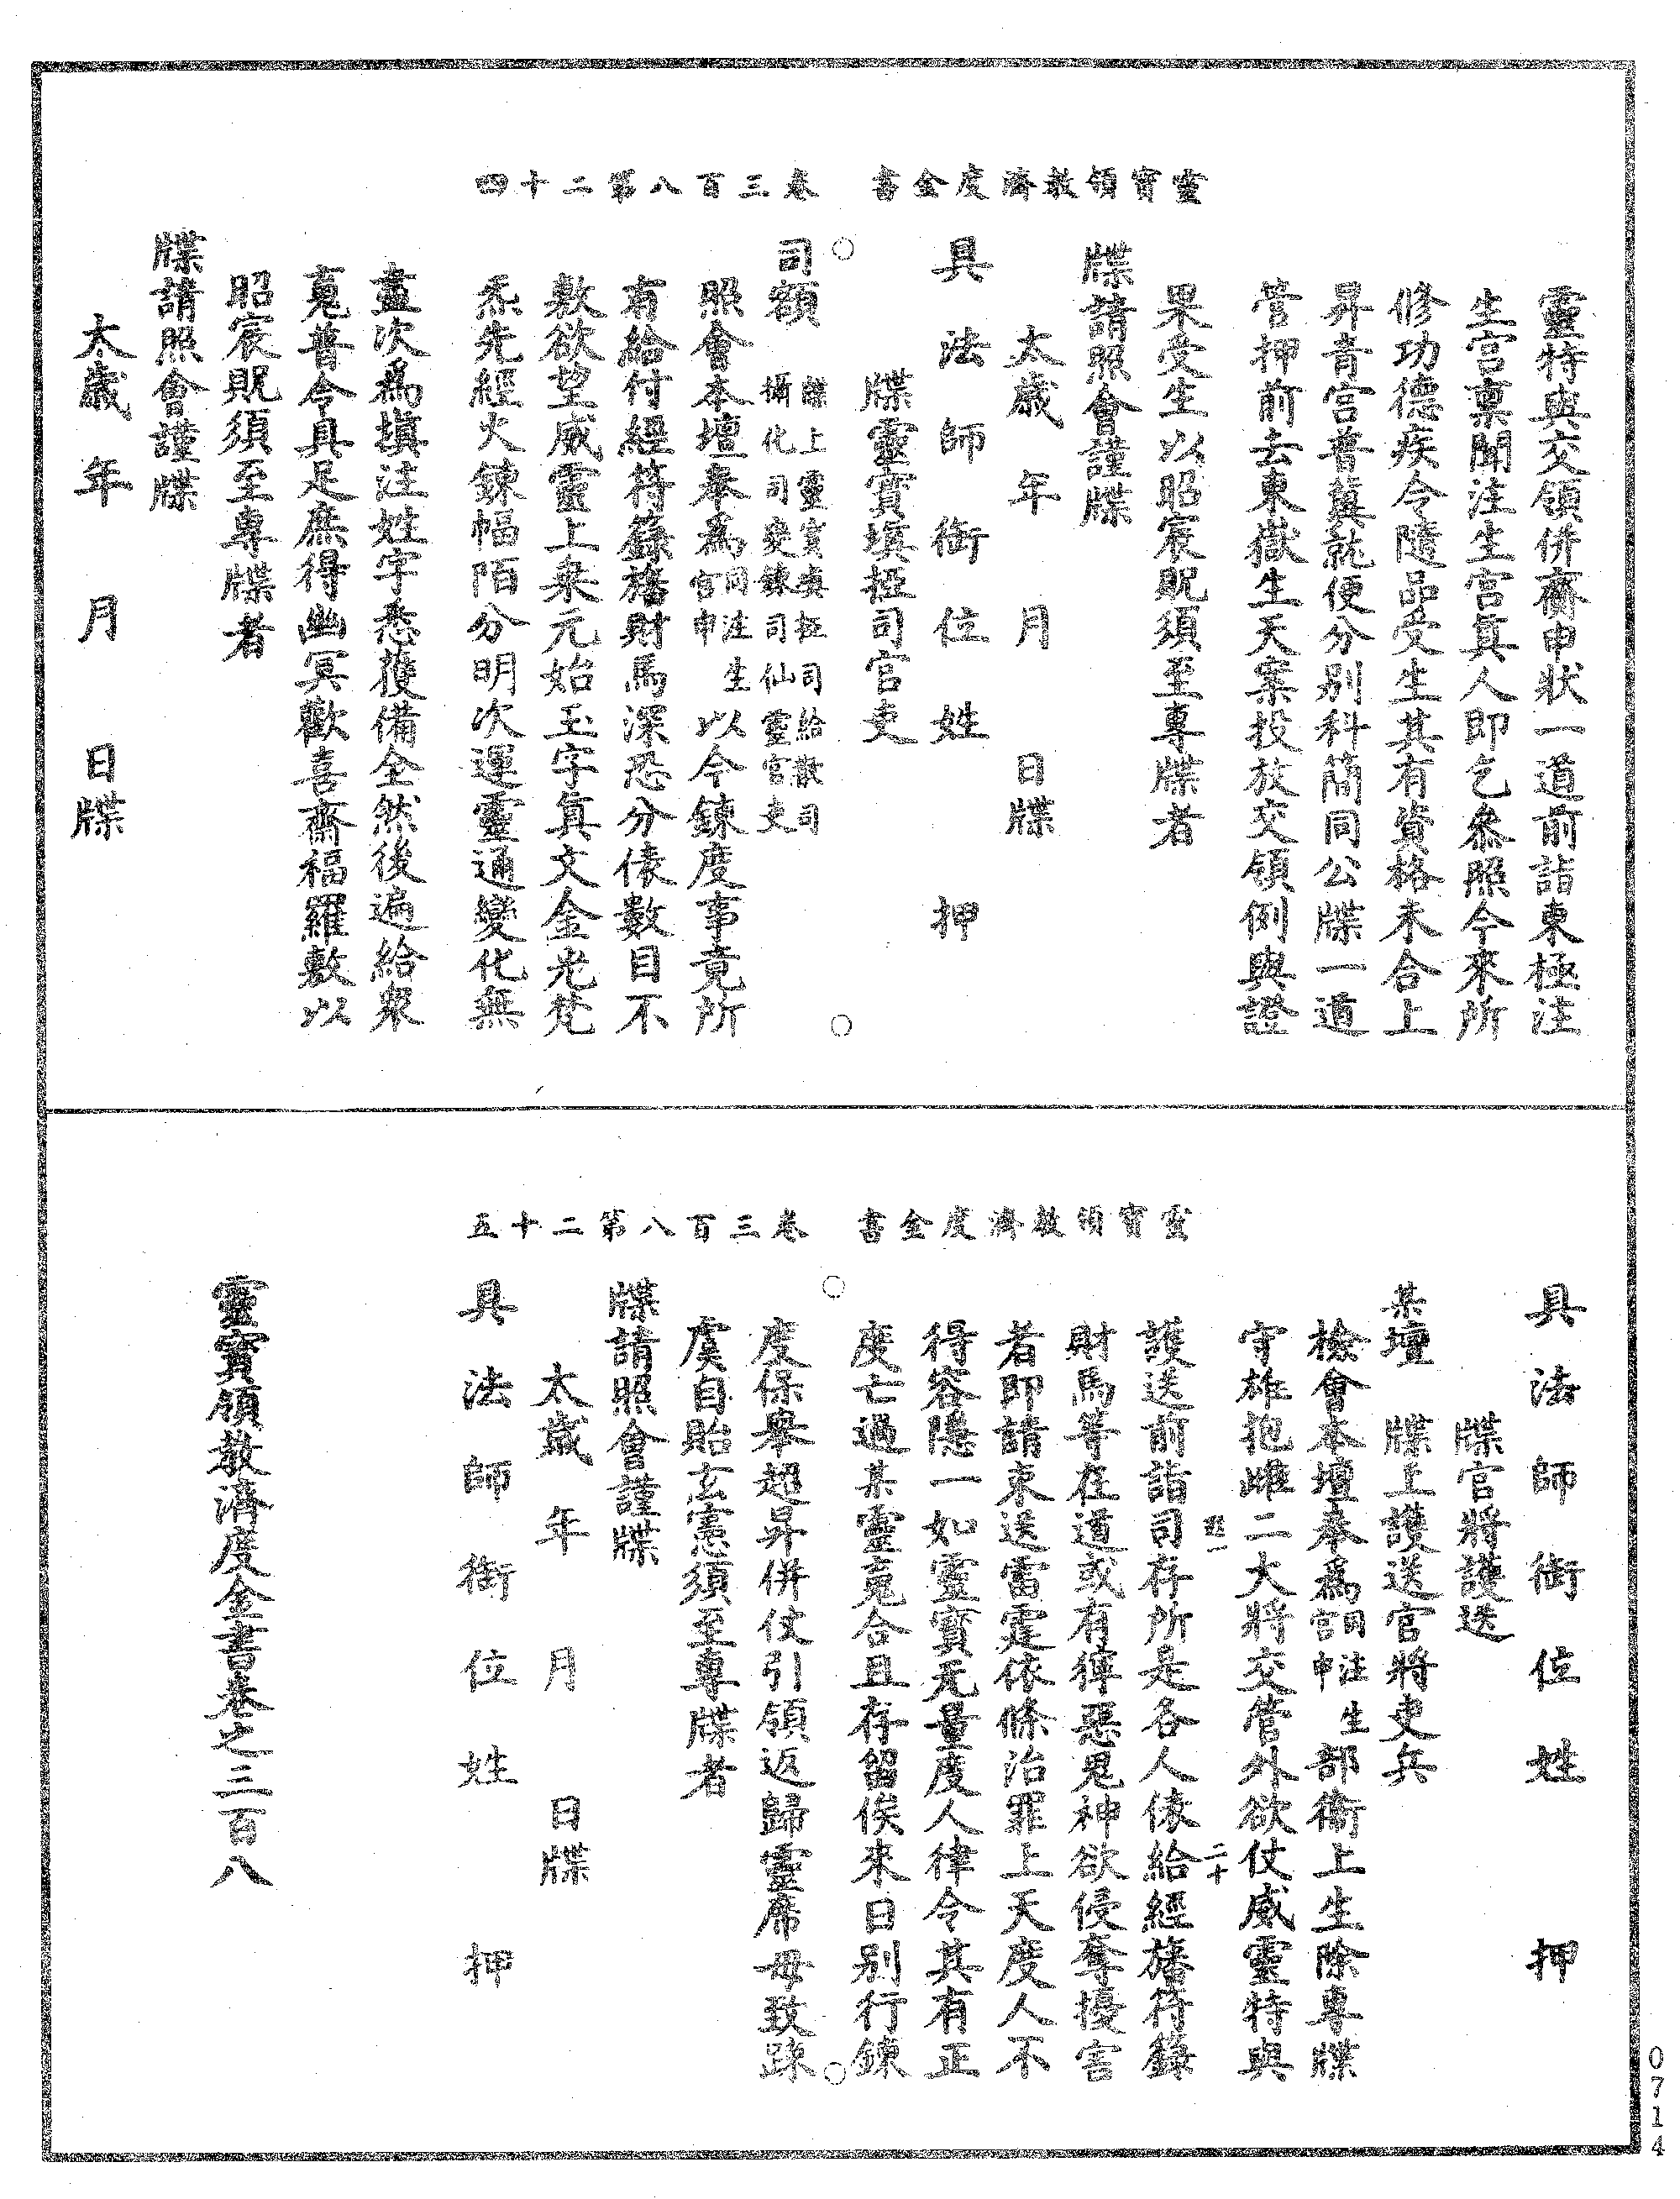 靈寶領教濟度金書　卷三百八第二十四
靈特與交領併齋申狀一道前詣東極注
生宮稟聞注生宮真人即乞參照今來所
修功德疾令隨品受生其有資格未合上
昇青宮普冀就便分別科簡同公牒一道
管押前去東嶽生天案投放交領例與證
果受生以昭宸貺須至專牒者
牒請照會謹牒
太歲　年　月　日牒
具法師銜位姓　押
牒靈寶填掗司官吏
司額　牒上靈寶填掗司給散司
攝化司變鍊司仙靈官吏
照會本壇奉爲官同申注生以今鍊度事竟所
有給付經符籙旛財馬深恐分俵數目不
敷欲望威靈上乘元始玉字真文金光梵
炁先經火鍊幅陌分明次運靈通變化無
盡次爲填注姓字悉獲備全然後遍給衆
䰟普令具足庶得幽冥歡喜齋福羅敷以
昭宸貺須至專牒者
牒請照會謹牒
太歲　年　月　日牒
靈寶領教濟度金書　卷三百八第二十五
具法師銜位姓　押
牒官將護送
某壇　牒上護送官將吏兵
檢會本壇奉爲官同申注生部衛上生除專牒
守雄抱雌二大將交管外欲仗威靈特與
二十
護送前詣司存所是各人俵給經旛符籙
財馬等在道或有獰惡鬼神欲侵奪擾害
者即請束送雷霆依條治罪上天度人不
得容隱一如靈寶无量度人律令其有正
度亡過某靈䰟合且存留俟來日別行鍊
度保舉超昇併仗引領返歸靈席毋致踈
虞自貽玄憲須至專牒者
牒請照會謹牒
太歲　年　月　日牒
具法師銜位姓　押
靈寶領教濟度金書卷之三百八
0714